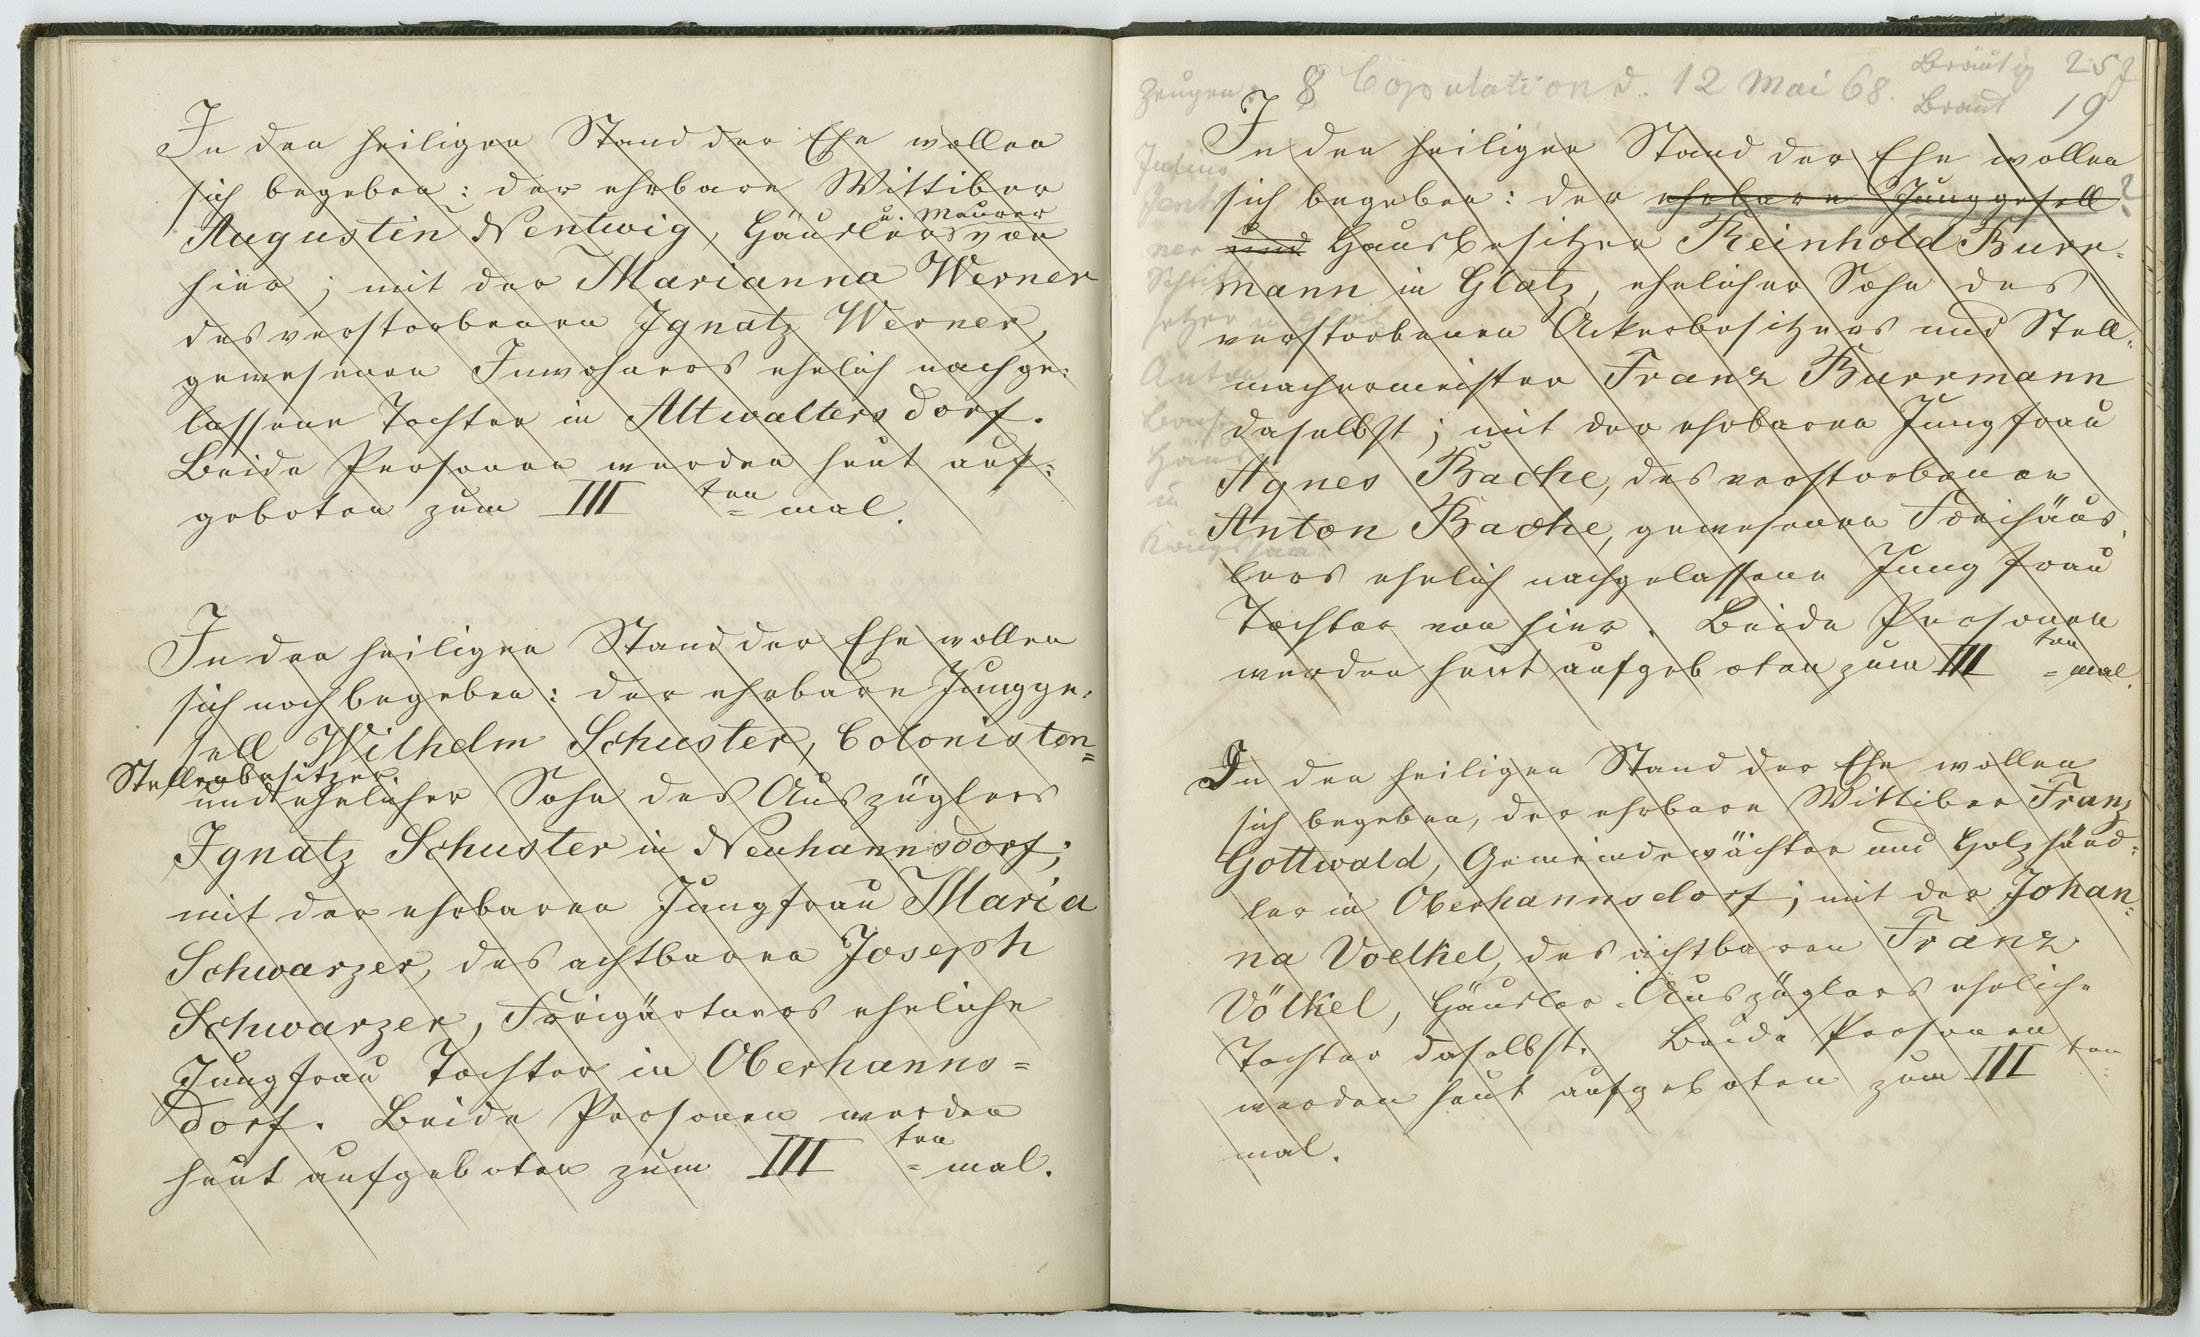 In den heiligen Stand der Ehe wollen
sich begeben: der ehrbare Wittiber
u. Maurer
Augustin Nentwig, Häuslers von
hier; mit der Marianna Werner
des verstorbenen Ignatz Werner,
gewesenen Inwohners ehelich nachge:
lassene Tochter in Altwaltersdorf.
Beide Personen werden heut auf:
geboten zum III ten = mal.
In den heiligen Stand der Ehe wollen
sich noch begeben: der ehrbare Jungge:
sell Wilhelm Schuster, Colonisten=
Stellenbesitzer
und ehelicher Sohn des Auszüglers
Ignatz Schuster in Neuhannsdorf;
mit der ehrbaren Jungfrau Maria
Schwarzer, des achtbaren Joseph
Schwarzer, Freigärtners eheliche
Jungfrau Tochter in Oberhanns=
dorf. Beide Personen werden
heut aufgeboten zum III ten = mal.
Zeugen: 8 Copulation d. 12 Mai 68. Bräutig 25 J
Braut 19
In den heiligen Stand der Ehe wollen
sich begeben: der ehrbare Junggesell ?
und Hausbesitzer Reinhold Burr=
mann in Glatz, ehelicher Sohn des
verstorbenen Ackerbesitzers und Stell=
machermeister Franz Burrmann
daselbst; mit der ehrbaren Jungfrau
Agnes Bache, des verstorbenen
Anton Bache, gewesenen Freihäus=
lers ehelich nachgelassene Jungfrau
Tochter von hier. Beide Personen
werden heut aufgeboten zum III ten = mal.
Julius
Jent
ner
Schrift
setzer
Anton
Häus
in
In den heiligen Stand der Ehe wollen
sich begeben, der ehrbare Wittiber Franz
Gottwald, Gemeindewächter und Holzhänd:
ler in Oberhannsdorf; mit der Johan=
na Voelkel, des achtbaren Franz
Völkel, Häusler-Auszüglers eheliche
Tochter daselbst. Beide Personen
werden heut aufgeboten zum III ten =
mal.